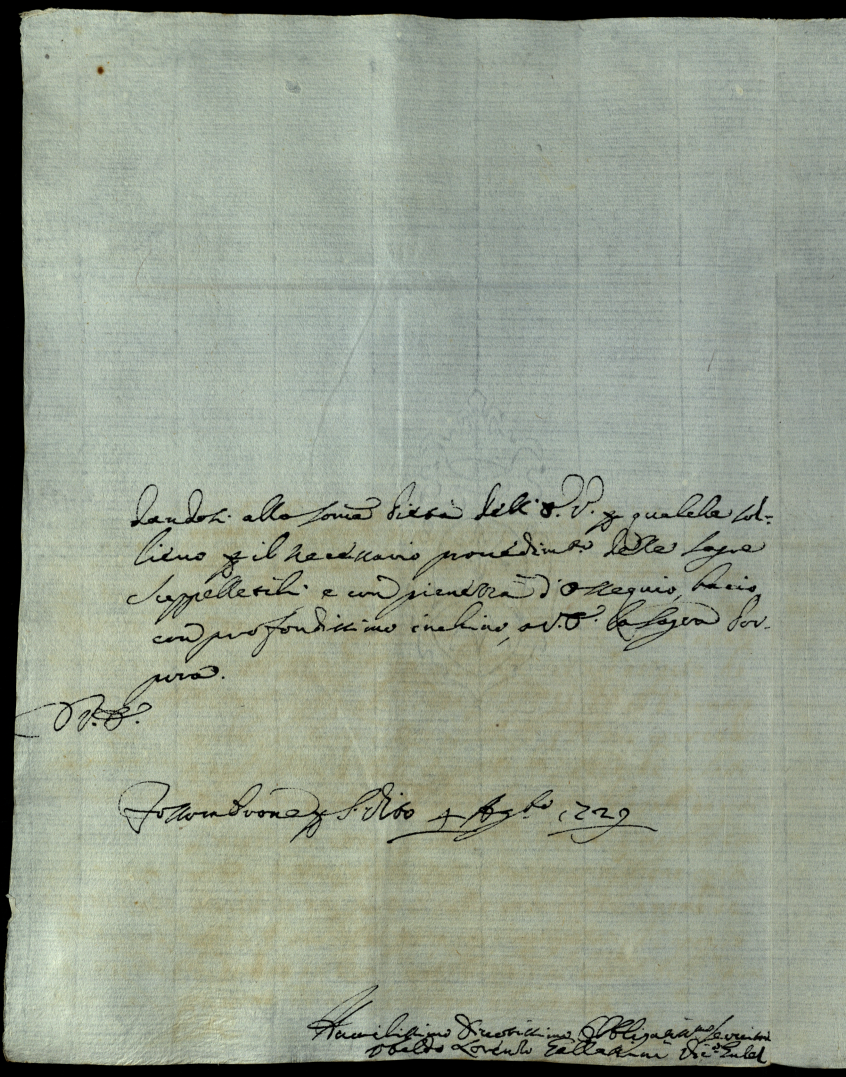 dandosi alla som̃a Pietà dell' E. V. ꝑ qualche sol-
lievo ꝑ il necessario provedim.to delle Sagre
Suppellettili e con pienezza d'ossequio, bacio
con profondissimo inchino, a V. E. la Sagra Por-
pora.
D V. E.
Fossombrone ꝑ S. Vito 4 Ag.to 1729
Humilissimo Divotissimo Obligatissimo Servitore
Ubaldo Lorenzo